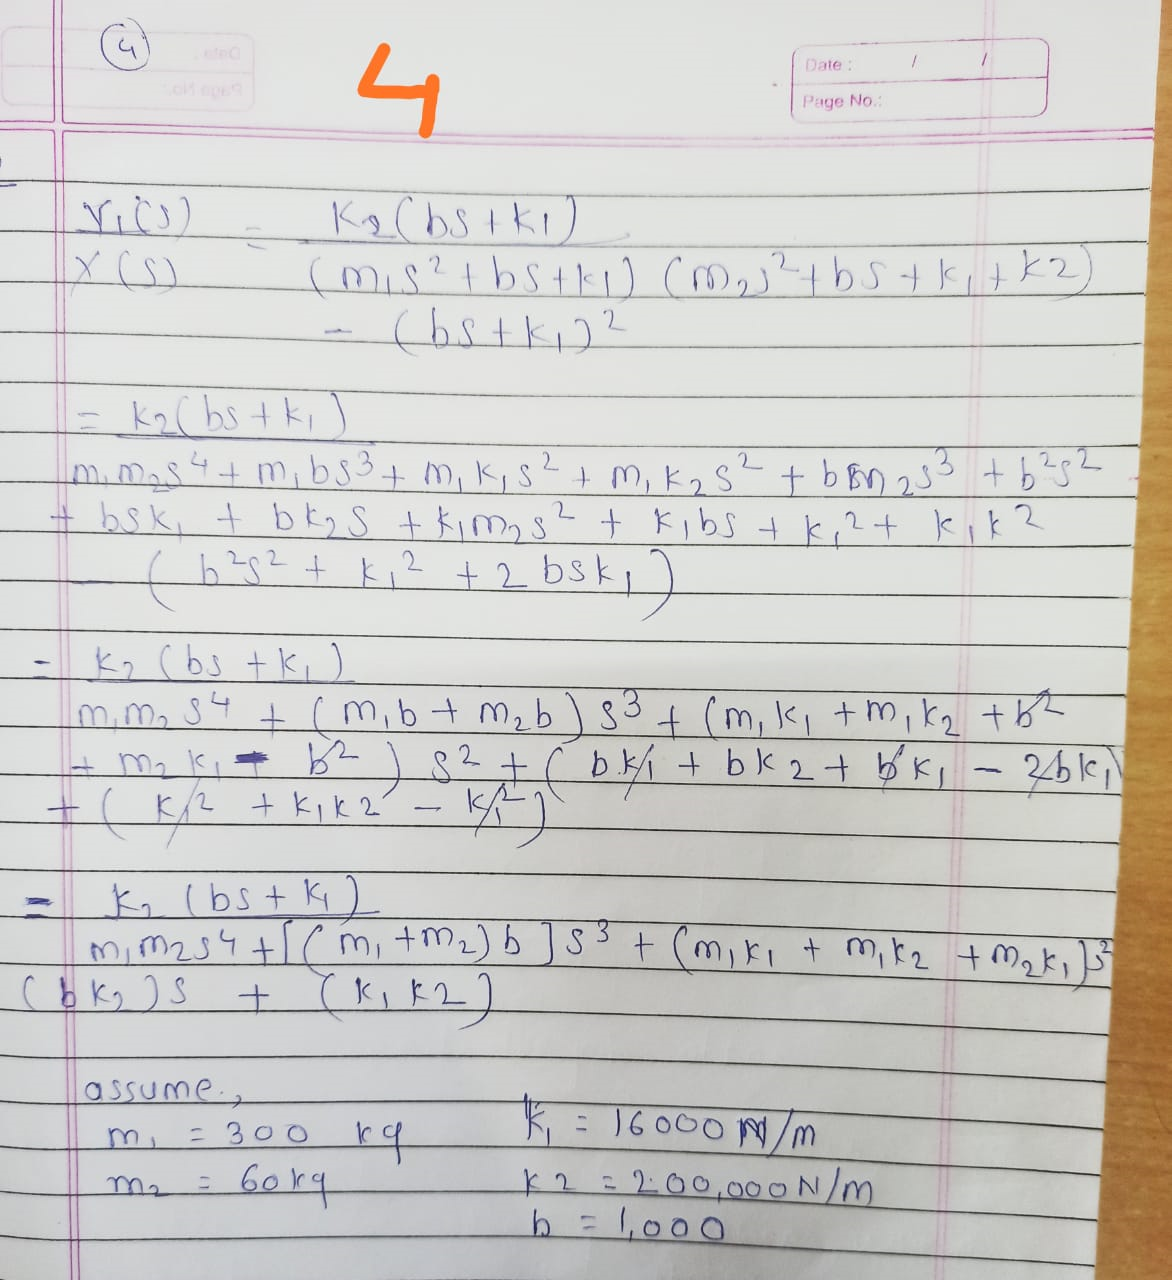 4
4
Date : / /
Page No.:
Y₁(s) = K₂(bs+k₁)
X(s) (m₁s²+bs+k₁) (m₂s²+bs+k₁+k2)
- (bs+k₁)²
= k₂(bs+k₁)
m₁m₂s⁴ + m₁bs³ + m₁k₁s² + m₁k₂s² + bm₂s³ + b²s²
+ bsk₁ + bk₂s + k₁m₂s² + k₁bs + k₁² + k₁k2
- (b²s² + k₁² + 2bsk₁)
= k₂ (bs+k₁)
m₁m₂s⁴ + (m₁b+m₂b)s³ + (m₁k₁+m₁k₂+b²
+ m₂k₁ - b²) s² + (bk₁ + bk2 + bk₁ - 2bk₁)
+ (k₁² + k₁k2 - k₁²)
= k₂ (bs+k₁)
m₁m2s4+[(m₁+m₂)b]s³ + (m₁k₁ + m₁k₂ + m₂k₁)s²
(bk₂)s + (k₁k2)
assume.,
m₁ = 300 kg k₁ = 16000 N/m
m₂ = 60kg k2 = 200,000N/m
b = 1,000